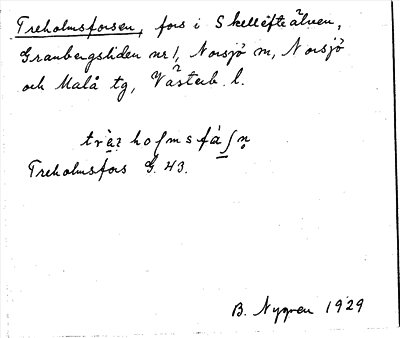 Treholmsforsen, fors i Skellefteälven,
Granbergsliden nr 1, Norsjö sn, Norsjö
och Malå tg, Västerb. l.
Treholmsfors G. 43.
B. Nygren 1929